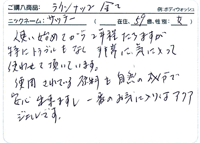 ご購入商品: ラインナップ 全て 例:ボディウォッシュ
ニックネーム: サッカー 在住, 59歳, 性別( 女 )
使い始めてから2年程たちますが
特にトラブルもなく非常に気に入って
使わせて頂いています。
使用されている原料も自然の成分で
安心出来ますし一番のお気に入りはアクア
ジェルです。